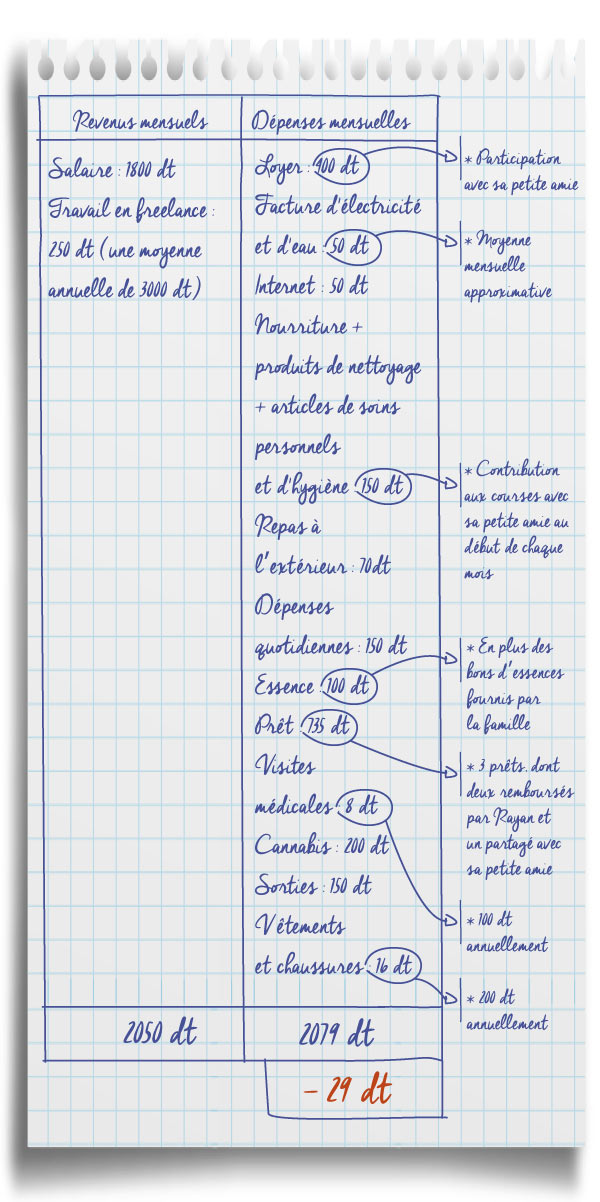 Revenus mensuels
Salaire : 1800 dt
Travail en freelance :
250 dt (une moyenne
annuelle de 3000 dt)
2050 dt
Dépenses mensuelles
Loyer : 400 dt
Facture d'électricité
et d'eau : 50 dt
Internet : 50 dt
Nourriture +
produits de nettoyage
+ articles de soins
personnels
et d'hygiène : 150 dt
Repas à
l'extérieur : 70dt
Dépenses
quotidiennes : 150 dt
Essence : 100 dt
Prêt : 735 dt
Visites
médicales : 8 dt
Cannabis : 200 dt
Sorties : 150 dt
Vêtements
et chaussures : 16 dt
2079 dt
- 29 dt
* Participation
avec sa petite amie
* Moyenne
mensuelle
approximative
* Contribution
aux courses avec
sa petite amie au
début de chaque
mois
* En plus des
bons d'essences
fournis par
la famille
* 3 prêts, dont
deux remboursés
par Rayan et
un partagé avec
sa petite amie
* 100 dt
annuellement
* 200 dt
annuellement